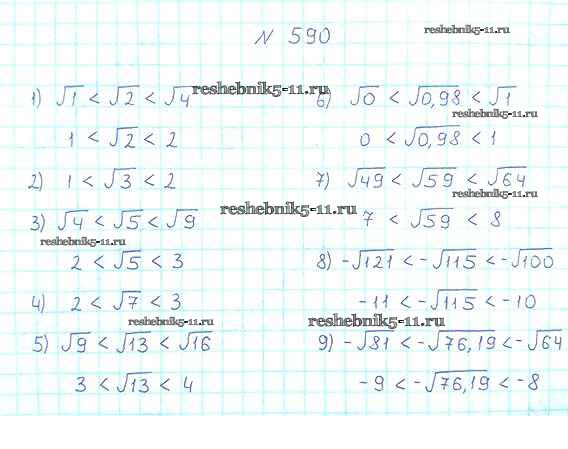 N 590
reshebnik5-11.ru
1) √1 < √2 < √4
reshebnik5-11.ru
1 < √2 < 2
2) 1 < √3 < 2
3) √4 < √5 < √9
reshebnik5-11.ru
reshebnik5-11.ru
2 < √5 < 3
4) 2 < √7 < 3
reshebnik5-11.ru
5) √9 < √13 < √16
3 < √13 < 4
6) √0 < √0,98 < √1
reshebnik5-11.ru
0 < √0,98 < 1
7) √49 < √59 < √64
reshebnik5-11.ru
7 < √59 < 8
8) -√121 < -√115 < -√100
-11 < -√115 < -10
reshebnik5-11.ru
9) -√81 < -√76,19 < -√64
-9 < -√76,19 < -8